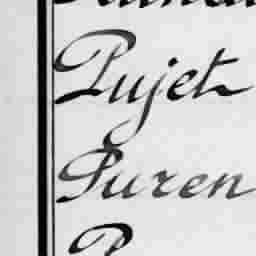 Pujet
Puren